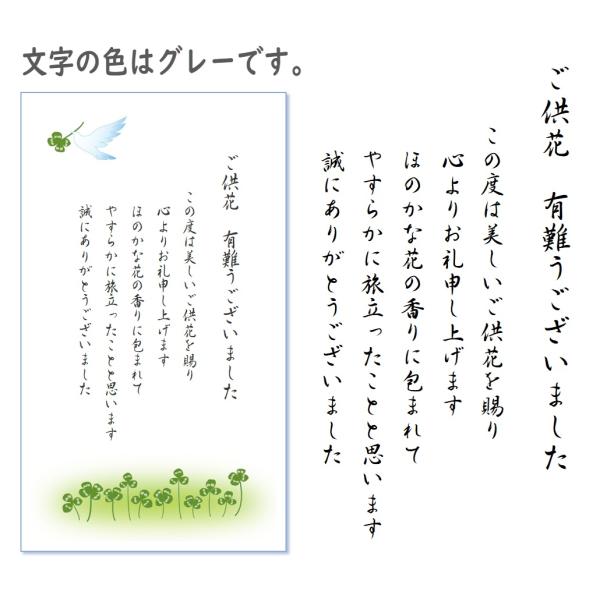 文字の色はグレーです。
ご供花　有難うございました
この度は美しいご供花を賜り
心よりお礼申し上げます
ほのかな花の香りに包まれて
やすらかに旅立ったことと思います
誠にありがとうございました
ご供花　有難うございました
この度は美しいご供花を賜り
心よりお礼申し上げます
ほのかな花の香りに包まれて
やすらかに旅立ったことと思います
誠にありがとうございました